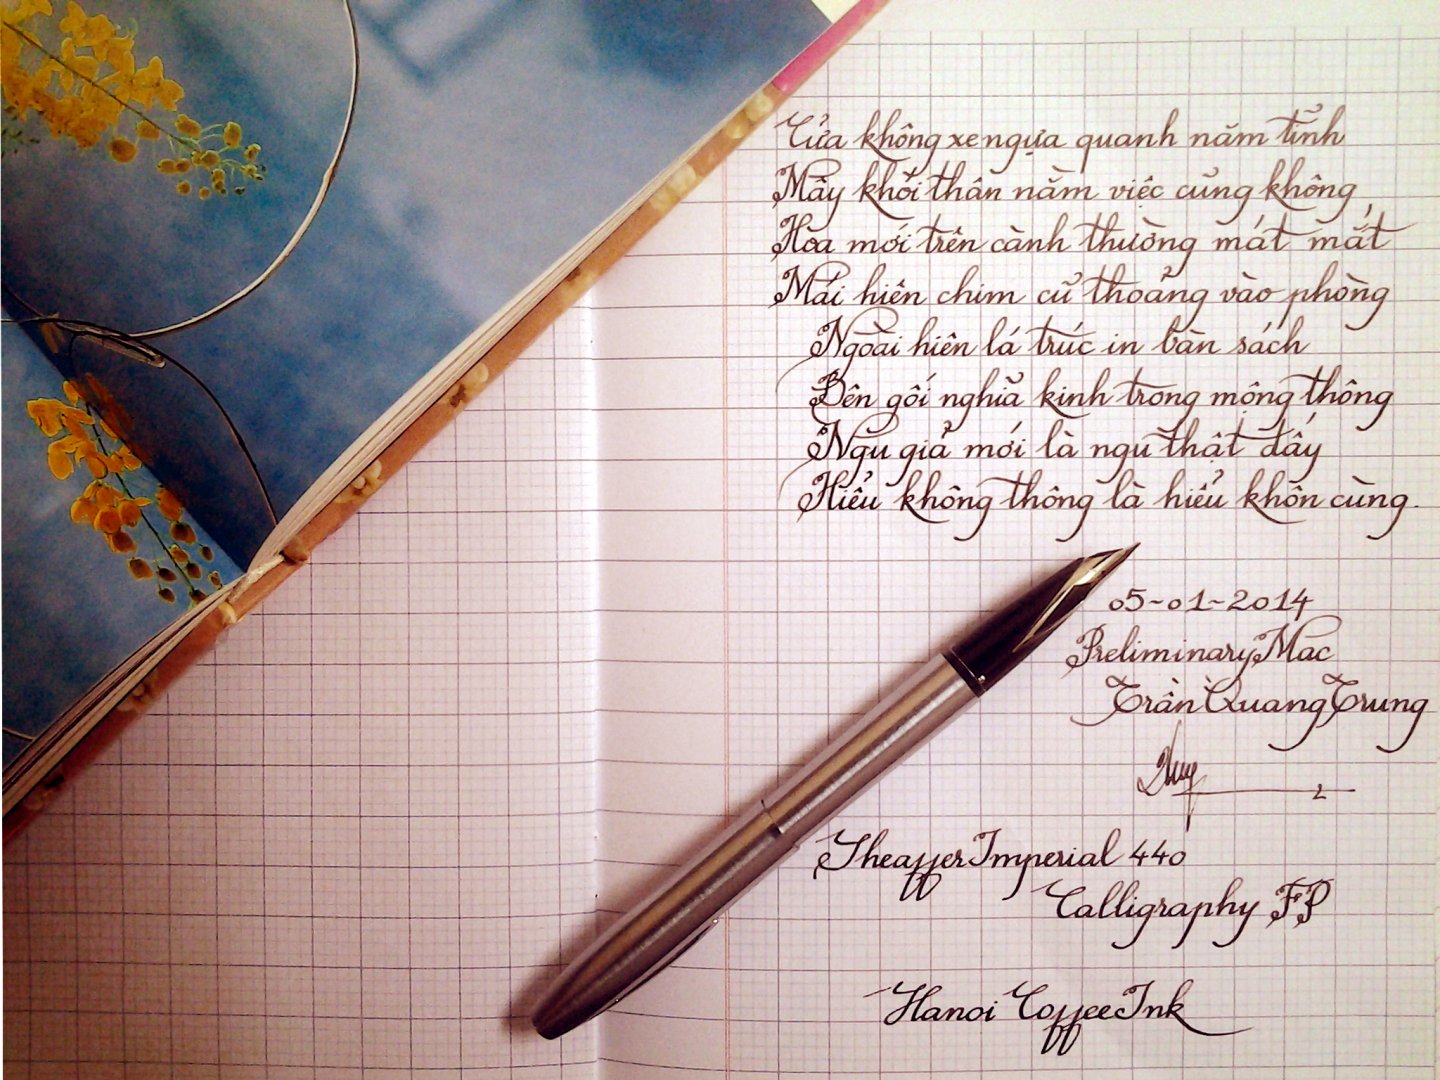 Cửa không xe ngựa quanh năm tĩnh
Mấy khối thân nằm việc cũng không
Hòa mới trên cành thường mát mắt
Mái hiên chim cũ thoảng vào phòng
Ngoài hiên lá trúc in bàn sách
Bên gối nghĩa kinh trong mộng thông
Ngu giả mới là ngu thật đấy
Hiểu không thông là hiểu khôn cùng.
05-01-2014
Preliminary Mac
Trần Quang Trung
Duy
Sheaffer Imperial 440
Calligraphy FP
Hanoi Coffee Ink